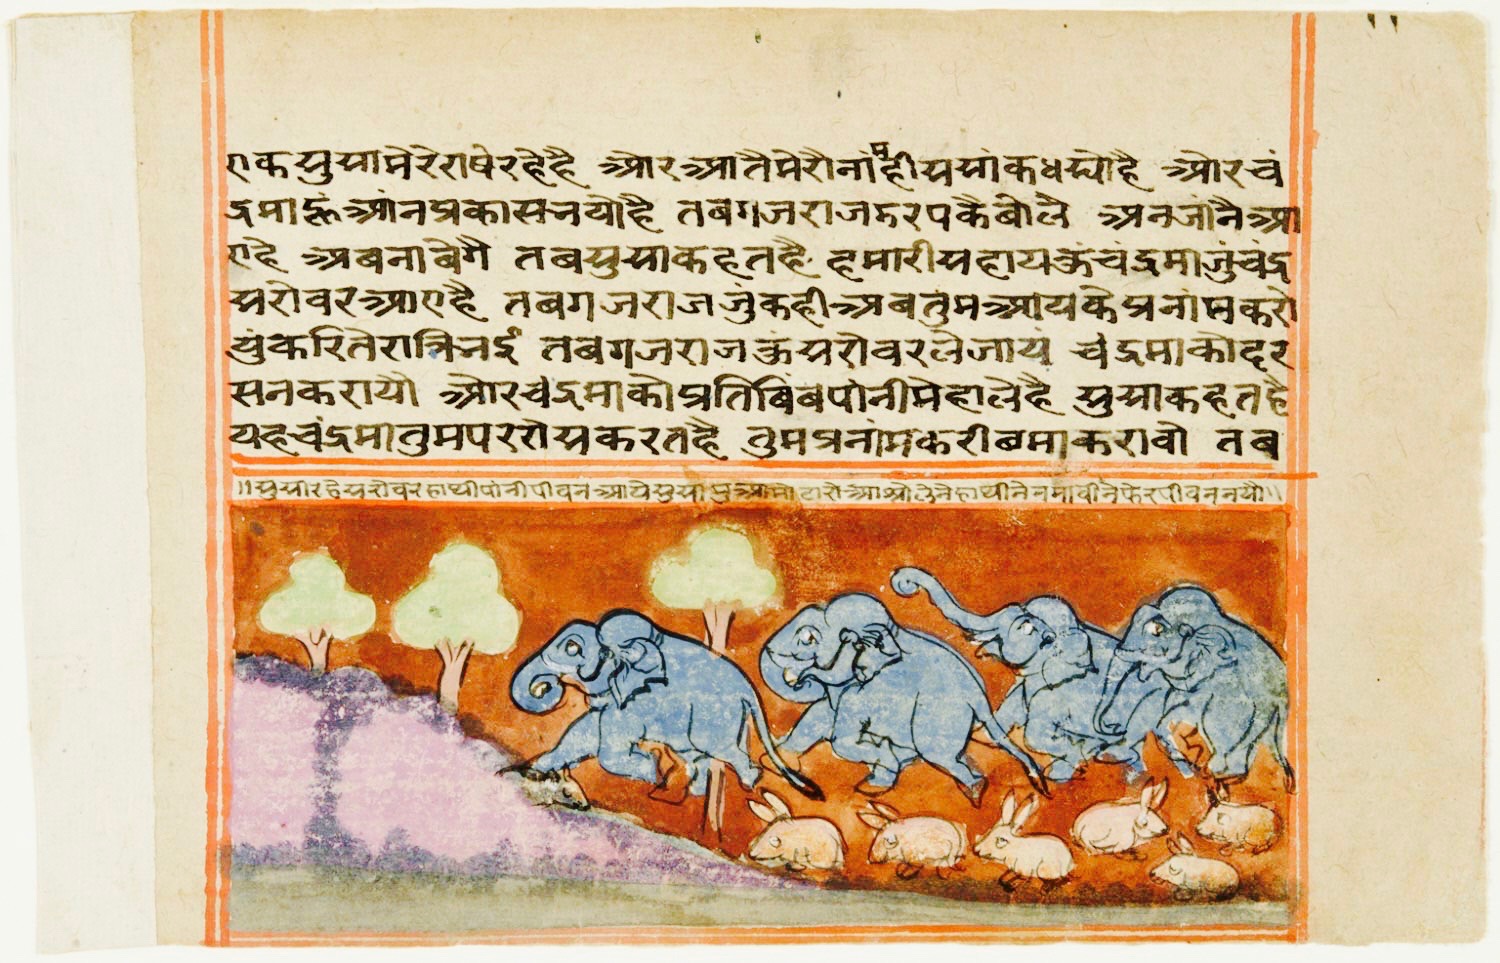 सुसामेरेराषेरहेहै औरआतैमेरौनांमहीससांकधर्योहै औरचं
द्रमा आंनप्रकास तबगजराजदरपकैबोलै अनजानैआ
एहै अबनाबेगै तबसुसाकहतहै हमारीसहायकूंचंद्रमाजुंचंद्र
सरोवरआएहै तबगजराजजुंकहीअबतुमआयकेप्रनांमकरो
युंकरितेरात्रिनई तबगजराजकूंसरोवरलेजायं चंद्रमाकोदर
सनकरायौ औरचंद्रमाकोप्रतिबिंबपांनीमेहालेहै सुसाकहतहै
यहचंद्रमातुमपररोसकरतहै तुमप्रनांमकरीषमाकरावो तब
॥सुसारहैसरोवरहाथीपांनीपीवनआयेसुसा